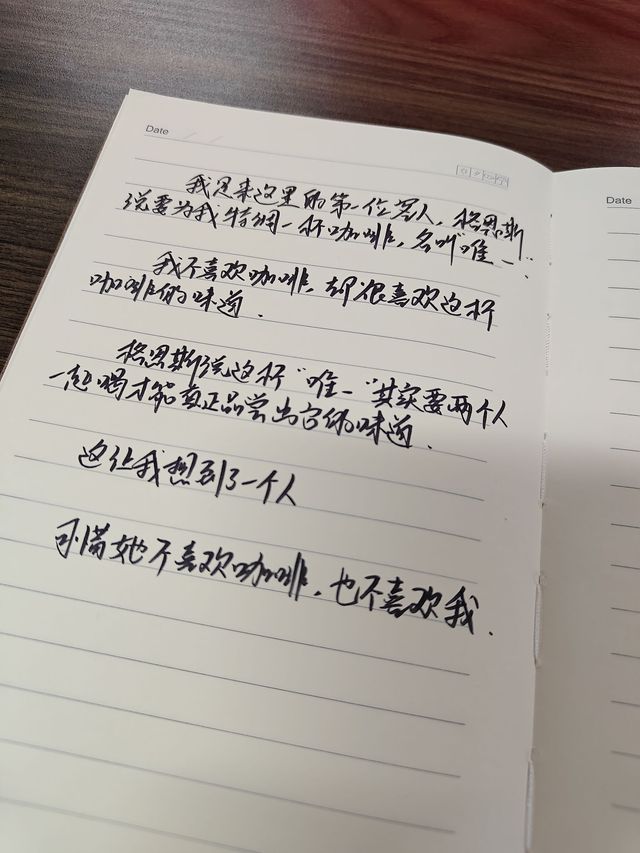 Date
我是来这里的第一位客人，格恩斯
说要为我特调一杯咖啡，名叫唯一．
我不喜欢咖啡，却很喜欢这杯
咖啡的味道．
格恩斯说这杯“唯一”其实要两个人
一起喝才能真正品尝出它的味道．
这让我想到了一个人
可惜她不喜欢咖啡．也不喜欢我．
Date